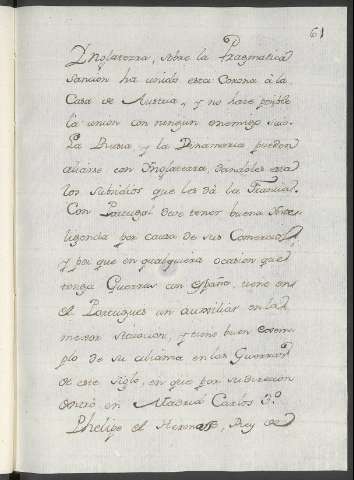 61
Inglaterra, sobre la Pragmatica
Sancion ha unido esta Corona á la
Casa de Austria, y no hace posible
la union con ningun enemigo suio.
La Prusia y la Dinamarca pueden
aliarse con Inglaterra, dandoles esta
los subsidios que les dá la Francia.
Con Portugal deve tener buena
ligencia por causa de sus Comercios,
y por que en qualquiera ocasion que
tenga Guerras con España, tiene en
el Portugues un auxiliar en la
mexor situacion, y tiene buen exem-
plo de su alianza en las Guerras
de este siglo, en que por su direccion
entró en Madrid Carlos 3.º
Phelipe el Rey de